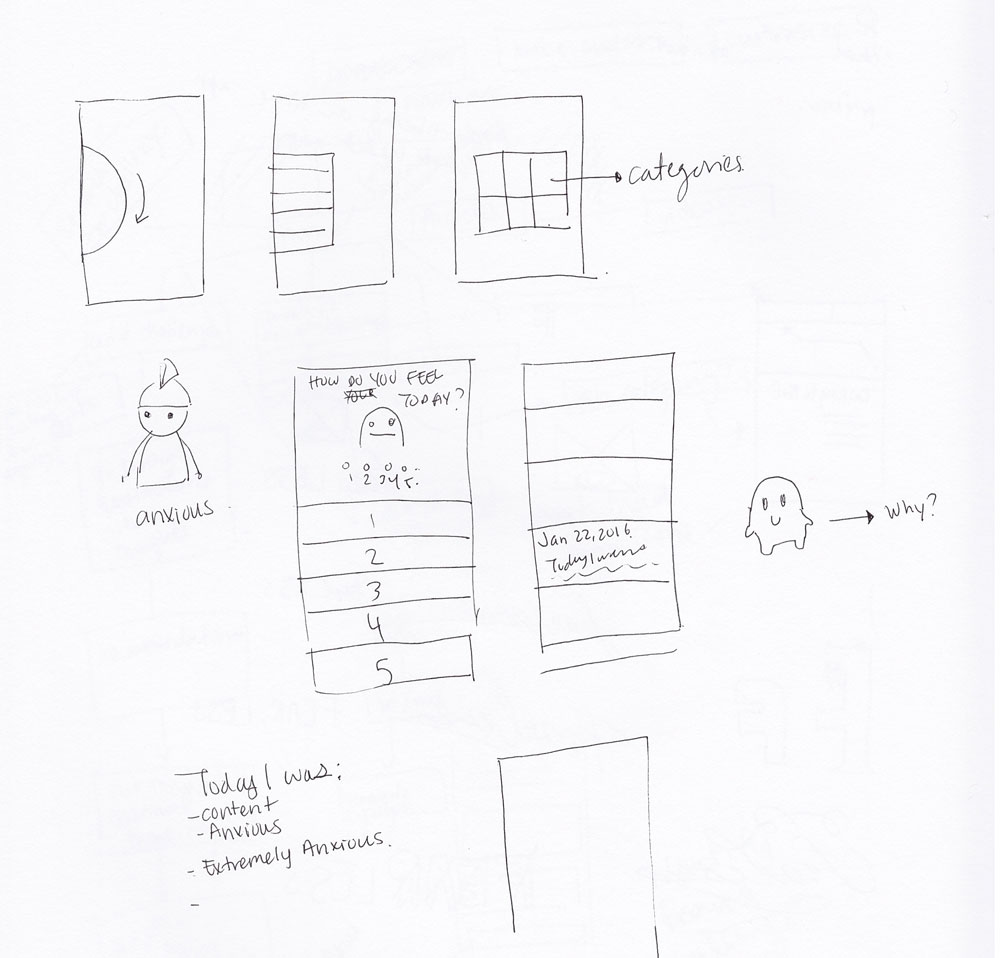 categories.
HOW DO YOU FEEL
TODAY?
1 2 3 4 5.
1
2
3
4
5
anxious
Jan 22, 2016.
Today I was
why?
Today I was:
- content
- Anxious
- Extremely Anxious.
-